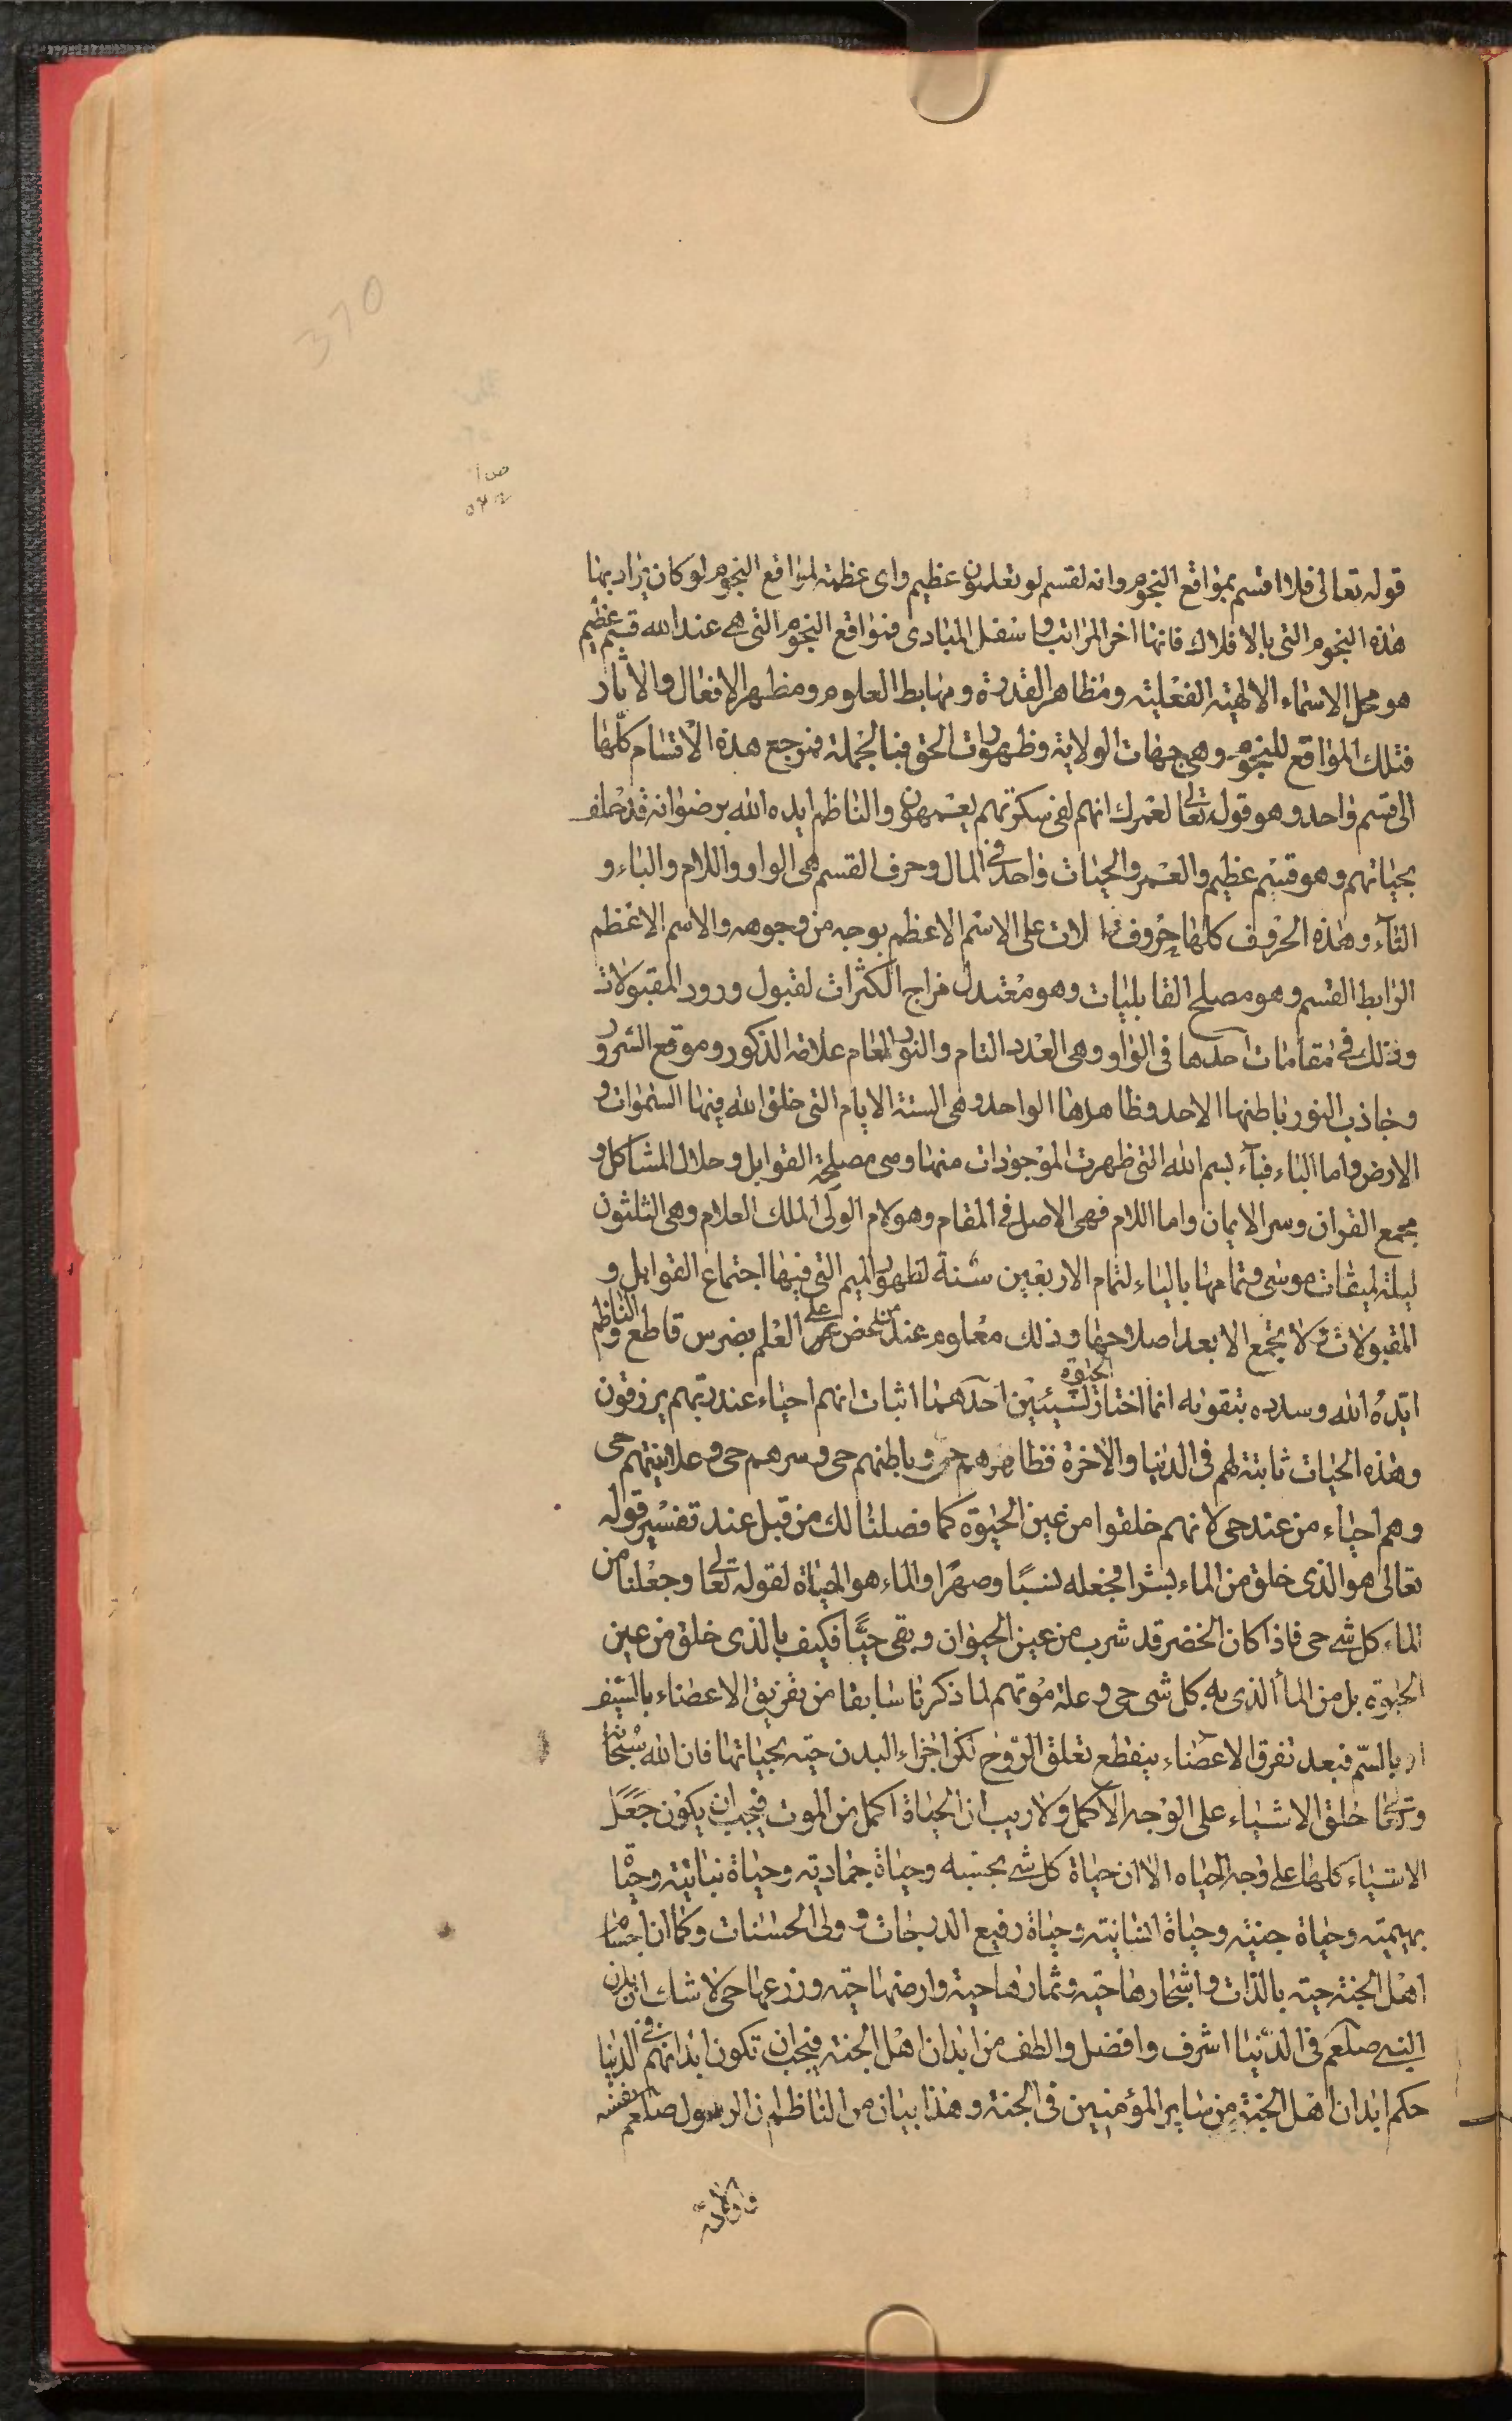 370
ص ١
قوله تعالى فلا اقسم بمواقع النجوم وانه لقسم لو تعلمون عظيم واى عظمة لمواقع النجوم لو كان يراد بها
هذه النجوم التى بالافلاك فانها اخر المراتب واسفل المبادى فمواقع النجوم التى هى عند الله قسم عظيم
هو محل الاسماء الالهية الفعلية ومظاهر القدرة ومهابط العلوم ومظهر الافعال والاثار
فتلك المواقع للنجوم وهى جهات الولاية وظهورات الحق فبالجملة فمرجع هذه الاقسام كلّها
الى قسم واحد وهو قوله تعالى لعمرك انهم لفى سكرتهم يعمهون والناظم ايده الله برضوانه قد حلف
بحياتهم وهو قسم عظيم والعمر والحيات واحد فى المال وحرف القسم هى الواو واللام والباء و
التآء وهذه الحروف كلها حروف دالات على الاسم الاعظم بوجه من وجوهه والاسم الاعظم
الرابط القسم وهو مصلح القابليات وهو معتدل مزاج الكثرات لقبول ورود المقبولات
وذلك فى مقامات احدها فى الواو وهى العدد التام والنور العام علامة الذكور وموقع السرور
وجاذب النور باطنها الاحد وظاهرها الواحد وهى الستة الايام التى خلق الله فيها السموات و
الارض واما الباء فبآء بسم الله التى ظهرت الموجودات منها وهى مصلحة القوابل وحلال المشاكل و
مجمع القران وسر الايمان واما اللام فهى الاصل فى المقام وهو لام الولى الملك العلام وهى الثلثون
ليلة لميقات موسى وتمامها بالياء لتمام الاربعين سنة لظهور الميم التى فيها اجتماع القوابل و
المقبولات لا يجتمع الا بعد اصلاحها وذلك معلوم عند من عض على العلم بضرس قاطع والناظم
ايّده الله وسدده بتقواه انما اختار الحيوة لشيئين احدهما اثبات انهم احياء عند ربهم يرزقون
وهذه الحيات ثابتة لهم فى الدنيا والاخرة فظاهرهم حى وباطنهم حى وسرهم حى وعلانيتهم حى
وهم احياء من عند حى لانهم خلقوا من عين الحيوة كما فصلنا لك من قبل عند تفسير قوله
تعالى هو الذى خلق من الماء بشرا فجعله نسبًا وصهرًا والماء هو الحياة لقوله تعالى وجعلنا من
الماء كل شى حى فاذا كان الخضر قد شرب من عين الحيوان وبقى حيًّا فكيف بالذى خلق من عين
الحيوة بل من المآ الذى به كل شى حى وعلة موتهم لما ذكرنا سابقا من تفريق الاعضاء بالسيف
او بالسّم فبعد تفرق الاعضاء ينقطع تعلق الروح لكن اجزاء البدن حيّة بحياتها فان الله سبحانه
وتعالى خلق الاشياء على الوجه الاكمل ولا ريب ان الحياة اكمل من الموت فيجب ان يكون جعل
الاشياء كلها على وجه الحياه الا ان حياة كل شى بحسبه وحياة جمادية وحياة نباتية وحياة
بهيمية وحياة جنية وحياة انسانية وحياة رفيع الدرجات وولى الحسنات وكما ان اجسام
اهل الجنة حية بالذات واشجارها حيه وثمارها حية وارضها حيّه وزرعها حى لا شك ان بدن
النبى صلعم فى الدّنيا اشرف وافضل والطف من ابدان اهل الجنة فيجب ان تكون ابدانهم فى الدنيا
حكم ابدان اهل الجنة من ساير المؤمنين فى الجنة وهذا بيان من الناظم ان الرسول صلعم بنفسه
واولاده